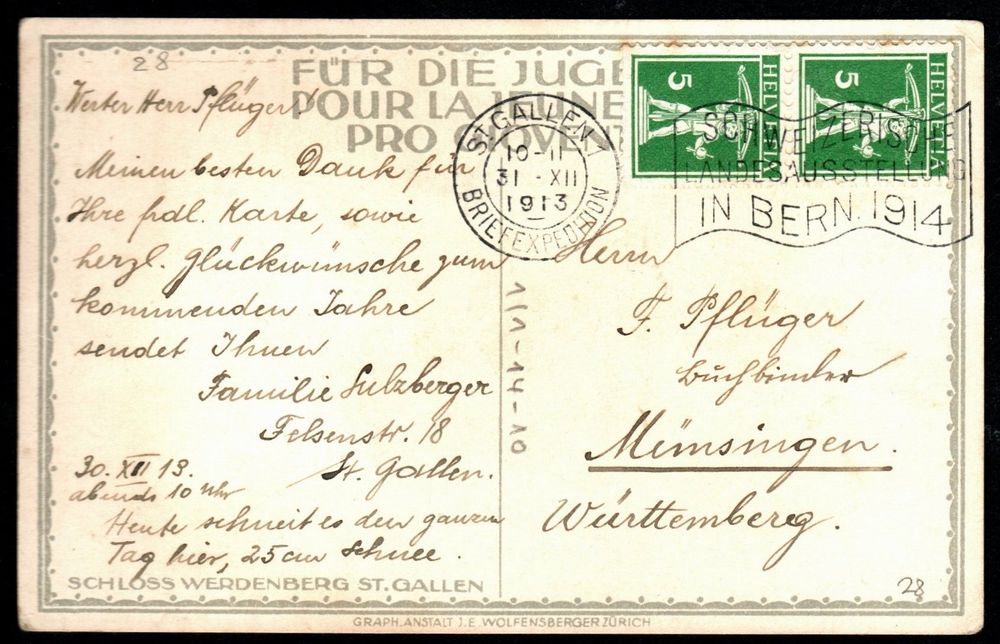 28
FÜR DIE JUGE
POUR LA JEUNE
PRO JUVE
Werter Herr Pflüger!
Meinen besten Dank für
Ihre frdl. Karte, sowie
herzl. Glückwünsche zum
kommenden Jahre
sendet Ihnen
Familie Sulzberger
Felsenstr. 18
St. Gallen.
30. XII 13.
abends 10 Uhr
Heute schneit es den ganzen
Tag hier, 25 cm Schnee.
SCHLOSS WERDENBERG ST. GALLEN
ST. GALLEN 1
10-11
31 - XII
1913
BRIEFEXPEDITION
5
HELVETIA
5
HELVETIA
SCHWEIZERISCHE
LANDESAUSSTELLUNG
IN BERN. 1914
1/1-14-10
Herrn
F. Pflüger
Buchbinder
Münsingen.
Württemberg.
28
GRAPH. ANSTALT J. E. WOLFENSBERGER ZÜRICH